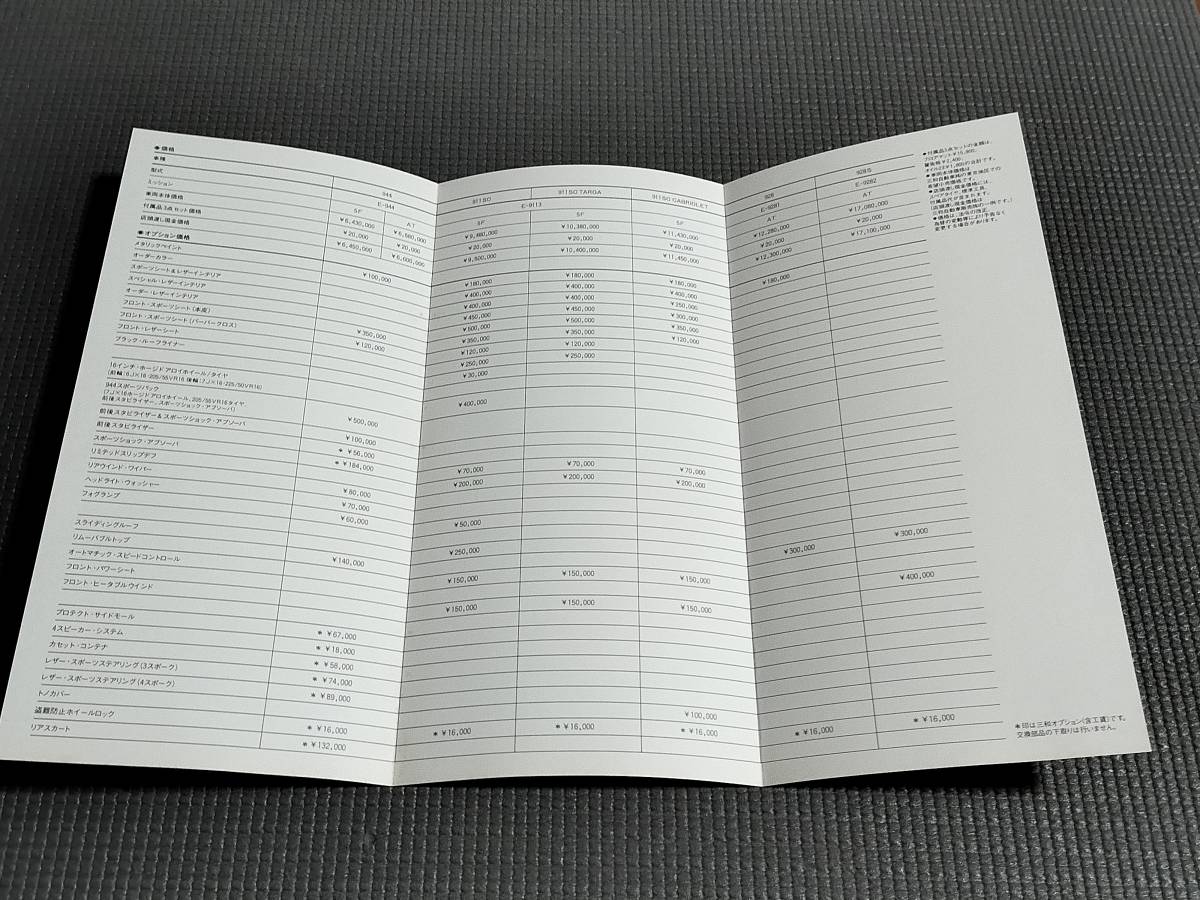 ●価格
車種
944
911SC
911SC TARGA
911SC CABRIOLET
928
928S
型式
E-944
E-9113
E-9281
E-9282
ミッション
5F
AT
5F
5F
5F
AT
AT
車両本体価格
¥6,430,000
¥9,880,000
¥10,380,000
¥11,430,000
¥12,280,000
¥17,080,000
付属品3点セット価格
¥20,000
¥20,000
¥20,000
¥20,000
¥20,000
¥20,000
¥20,000
店頭渡し現金価格
¥6,450,000
¥10,400,000
¥11,450,000
¥12,300,000
¥17,100,000
●オプション価格
メタリックペイント
¥100,000
¥180,000
¥180,000
¥180,000
¥180,000
オーダーカラー
¥400,000
¥400,000
¥400,000
スポーツシート&レザーインテリア
¥400,000
¥400,000
¥250,000
スペシャル・レザーインテリア
¥450,000
¥450,000
¥300,000
オーダー・レザーインテリア
¥500,000
¥500,000
¥350,000
フロント・スポーツシート(本皮)
¥350,000
¥350,000
¥350,000
¥120,000
フロント・スポーツシート(パーパークロス)
¥120,000
¥120,000
¥120,000
フロント・レザーシート
¥250,000
¥250,000
ブラック・ルーフライナー
¥30,000
16インチ・ホージドアロイホイール/タイヤ
(前輪:6J×16・205/55VR16 後輪:7J×16・225/50VR16)
¥400,000
944スポーツパック
(7J×16ホージドアロイホイール、205/55VR16タイヤ
前後スタビライザー、スポーツショック・アブソーバ)
¥500,000
前後スタビライザー&スポーツショック・アブソーバ
¥100,000
前後スタビライザー
*¥56,000
スポーツショック・アブソーバ
*¥184,000
¥70,000
¥70,000
¥70,000
リミテッドスリップデフ
¥80,000
¥200,000
¥200,000
¥200,000
リアウインド・ワイパー
¥70,000
ヘッドライト・ウォッシャー
¥60,000
¥50,000
フォグランプ
スライディングルーフ
¥250,000
¥300,000
¥300,000
リムーバブルトップ
¥140,000
オートマチック・スピードコントロール
¥150,000
¥150,000
¥150,000
フロント・パワーシート
¥400,000
フロント・ヒータブルウインド
¥150,000
¥150,000
¥150,000
プロテクト・サイドモール
*¥67,000
4スピーカー・システム
*¥18,000
カセット・コンテナ
*¥58,000
レザー・スポーツステアリング(3スポーク)
*¥74,000
レザー・スポーツステアリング(4スポーク)
*¥89,000
トノカバー
¥100,000
盗難防止ホイールロック
*¥16,000
*¥16,000
*¥16,000
*¥16,000
*¥16,000
*¥16,000
リアスカート
*¥132,000
●付属品3点セットの金額は、
フロアマット¥15,800、
オイル
●車両本体価格は、
三和自動車㈱の東京地区での
希望小売価格です。
●店頭渡し現金価格には、
スペアタイヤ、標準工具、
付属品代が含まれます。
●価格は、法令の改正、
為替の変動等により予告なく
変更する場合があります。
*印は三和オプション(含工賃)です。
交換部品の下取りは行いません。